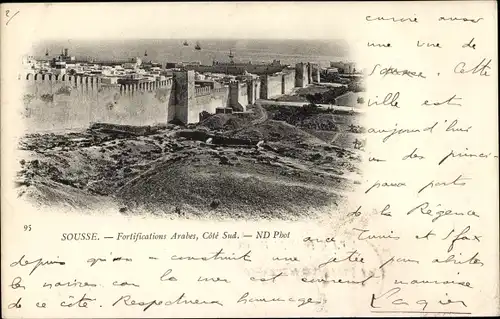 encore aussi
une vue de
Sousse. Cette
ville est
aujourd'hui
un des princi-
paux ports
de la Régence
95
SOUSSE. — Fortifications Arabes, Côté Sud. — ND Phot
avec Tunis et Sfax
depuis qu'on a construit une jetée pour abriter
les navires car la mer est souvent mauvaise
de ce côté. Respectueux hommages